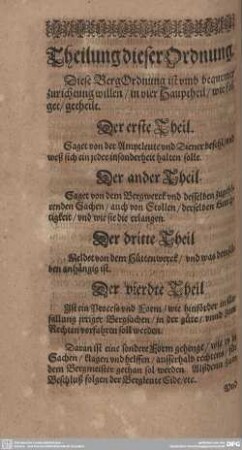 Theilung dieser Ordnung.
Diese BergOrdnung ist vmb bequemer
zurichtung willen / in vier Haupttheil / wie fol
get / getheilt.
Der erste Theil.
Saget von der Amptleute vnd Diener befehl / vnd
weß sich ein jeder insonderheit halten solle.
Der ander Theil
Saget von dem Bergwerck vnd desselben
enden Sachen / auch von Stollen / derselben
tigkeit / vnd wie die erlangen.
Der dritte Theil
Meldet von dem Hüttenwerck / vnd was
ben anhängig ist.
Der vierdte Theil
Ist ein Process vnd Form / wie hinförder
fallung jrriger Bergsachen / in der güte / vnnd zum
Rechten vorfahren soll werden.
Daran ist eine sondere Form gehengt / wie
Sachen / klagen vnd helffen / ausserhalb rechtens / für
dem Bergmeister gethan sol werden. Als denn zum
Beschluß folgen der Bergleute Eide / etc.